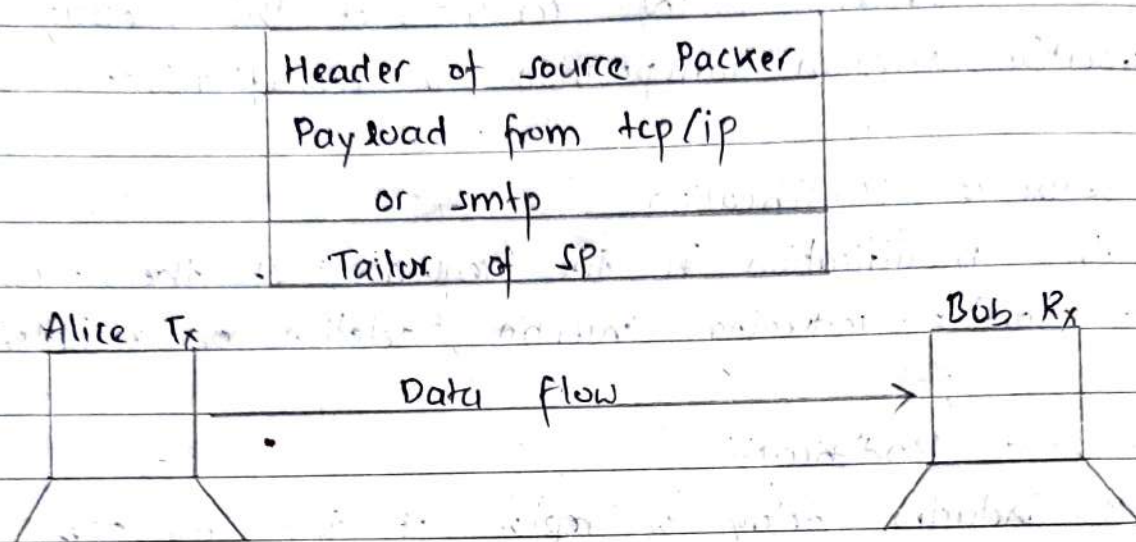 Header of source Packer
Payload from tcp/ip
or smtp
Tailor of SP
Alice Tx
Bob Rx
Data flow